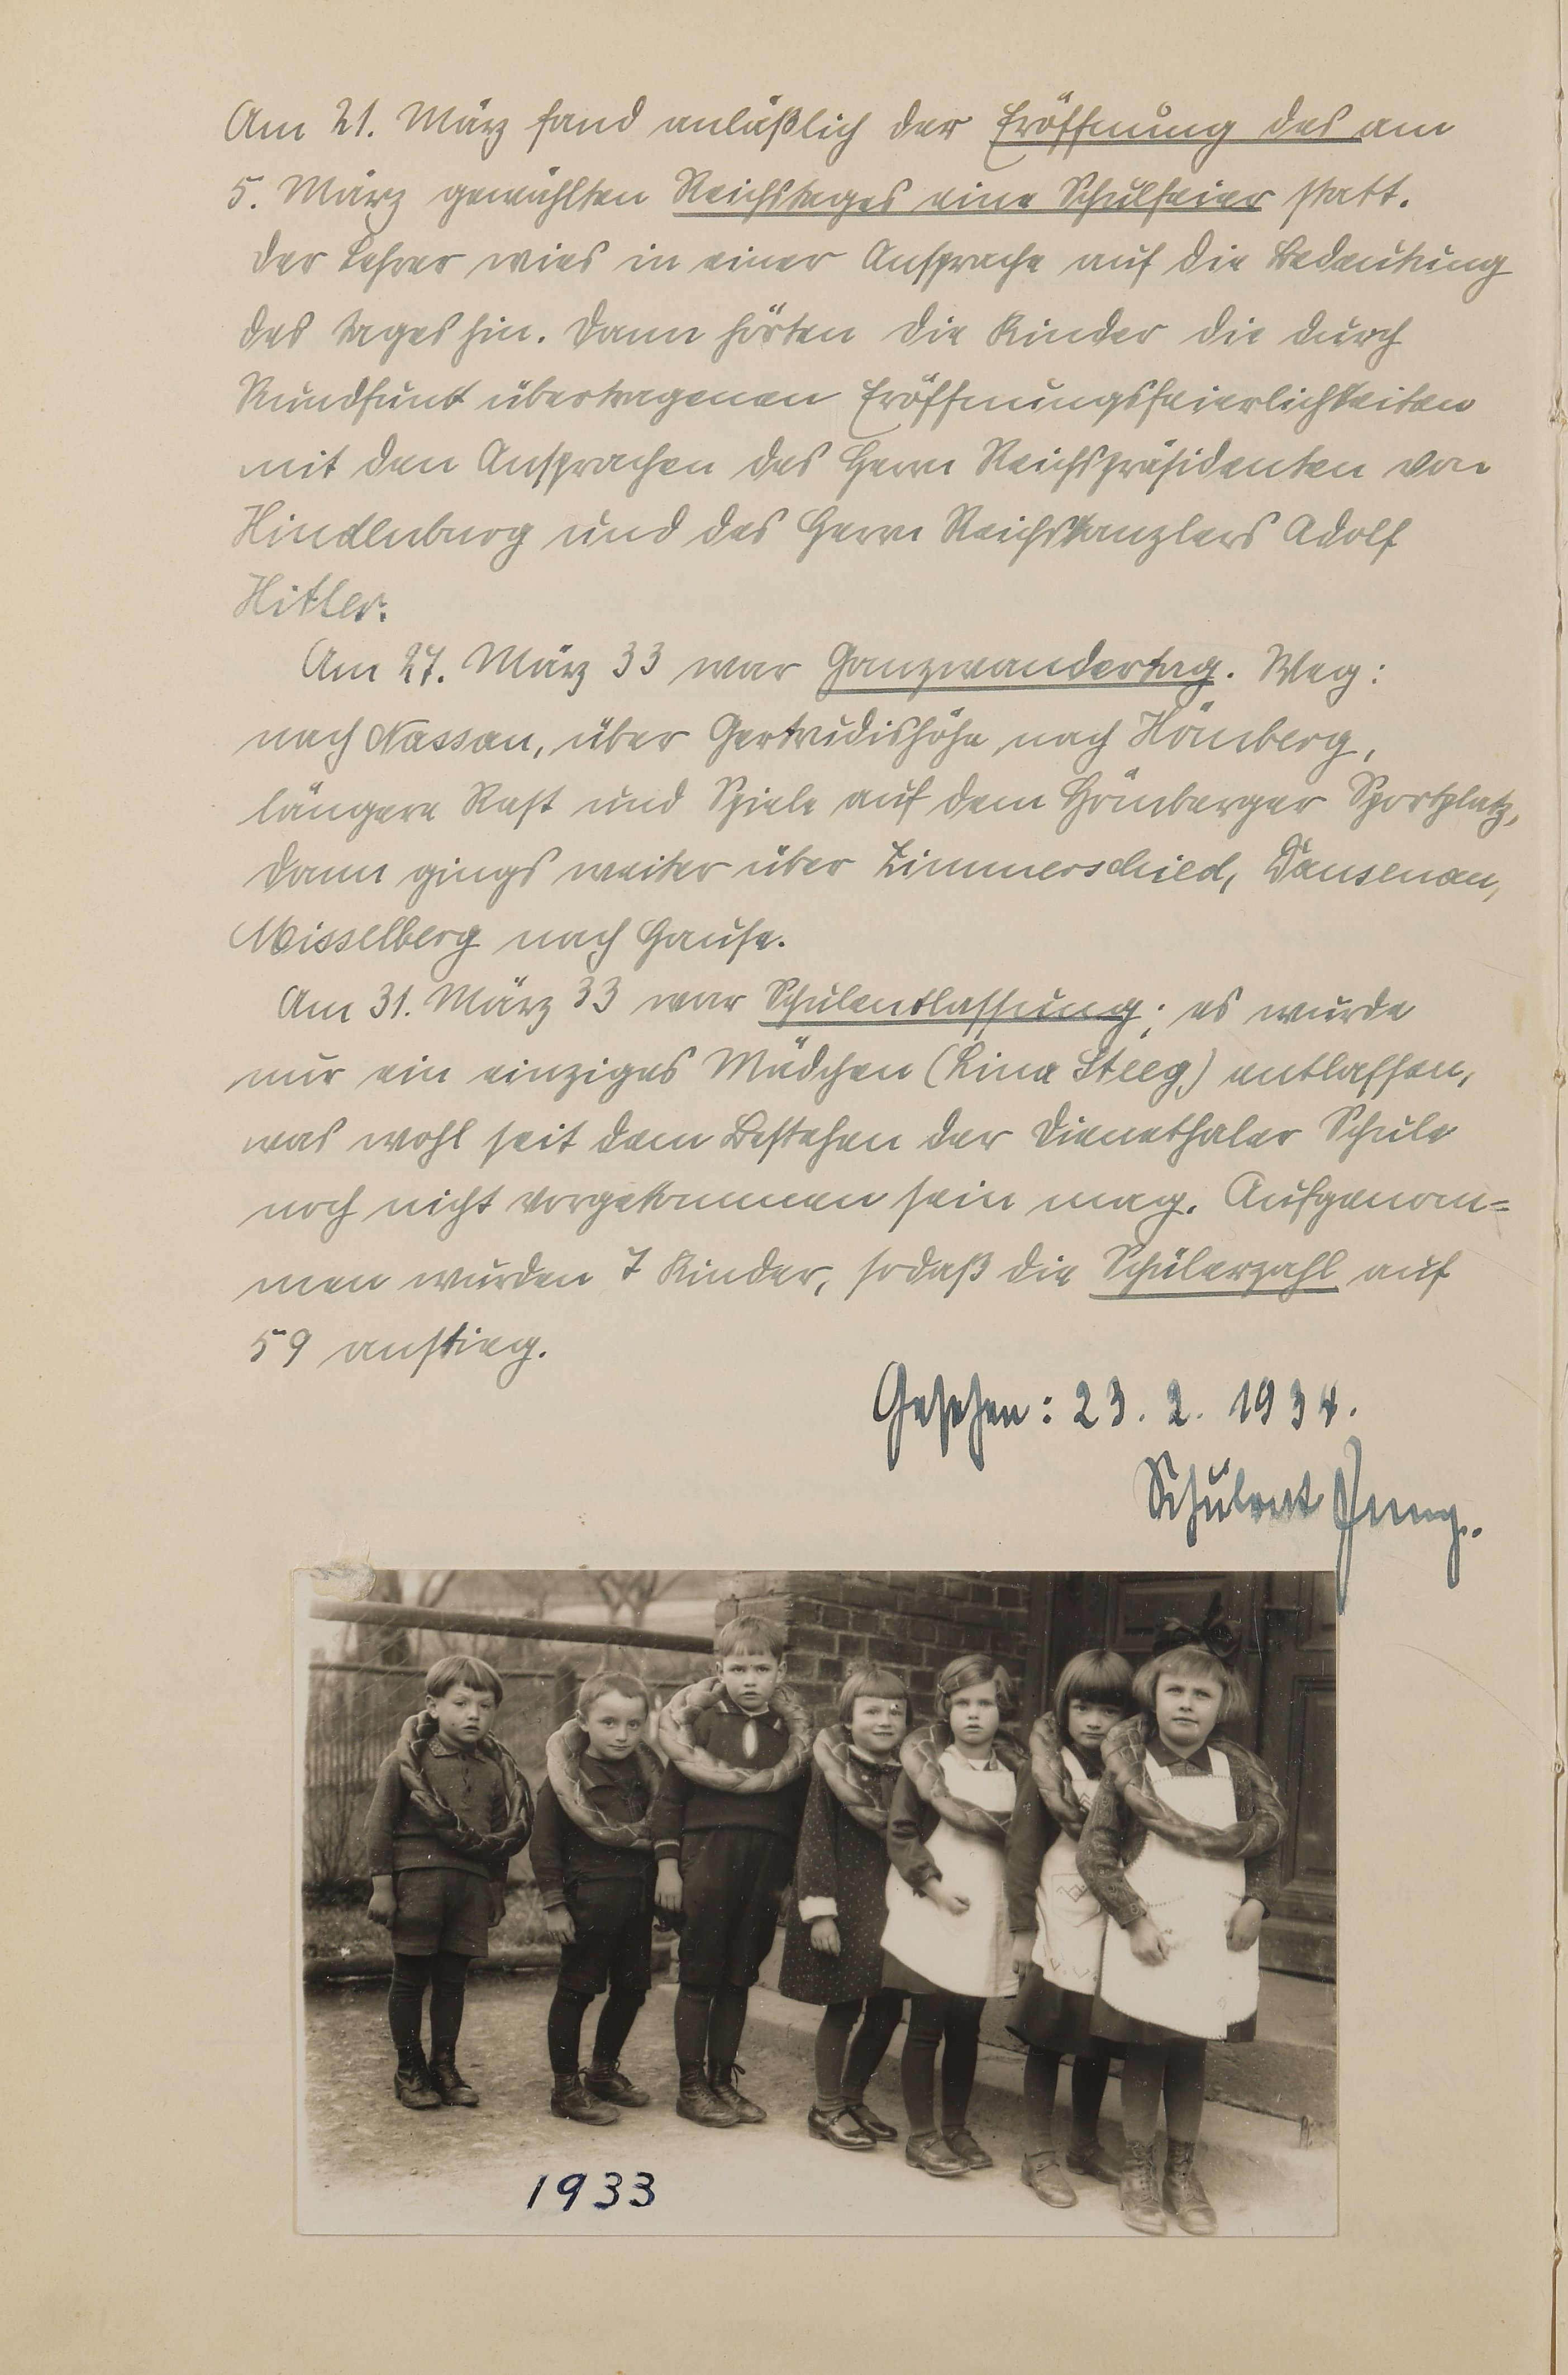 Am 21. März fand anläßlich der Eröffnung des am
5. März gewählten Reichstages eine Schulfeier statt.
Der Lehrer wies in einer Ansprache auf die Bedeutung
des Tages hin. Dann hörten die Kinder die durch
Rundfunk übertragenen Eröffnungsfeierlichkeiten
mit den Ansprachen des Herrn Reichspräsidenten von
Hindenburg und des Herrn Reichskanzlers Adolf
Hitler.
Am 27. März 33 war Ganzwandertag. Weg:
nach Nassau, über Gertrudishöhe nach Hömberg,
längere Rast und Spiele auf dem Hömberger Sportplatz,
dann gings weiter über Zimmerschied, Dausenau,
Misselberg nach Hause.
Am 31. März 33 war Schulentlassung; es wurde
nur ein einziges Mädchen (Lina Steeg) entlassen,
was wohl seit dem Bestehen der Dienethaler Schule
noch nicht vorgekommen sein mag. Aufgenom=
men wurden 7 Kinder, sodaß die Schülerzahl auf
59 anstieg.
Gesehen: 23. 2. 1934.
Schulrat Jung.
1933